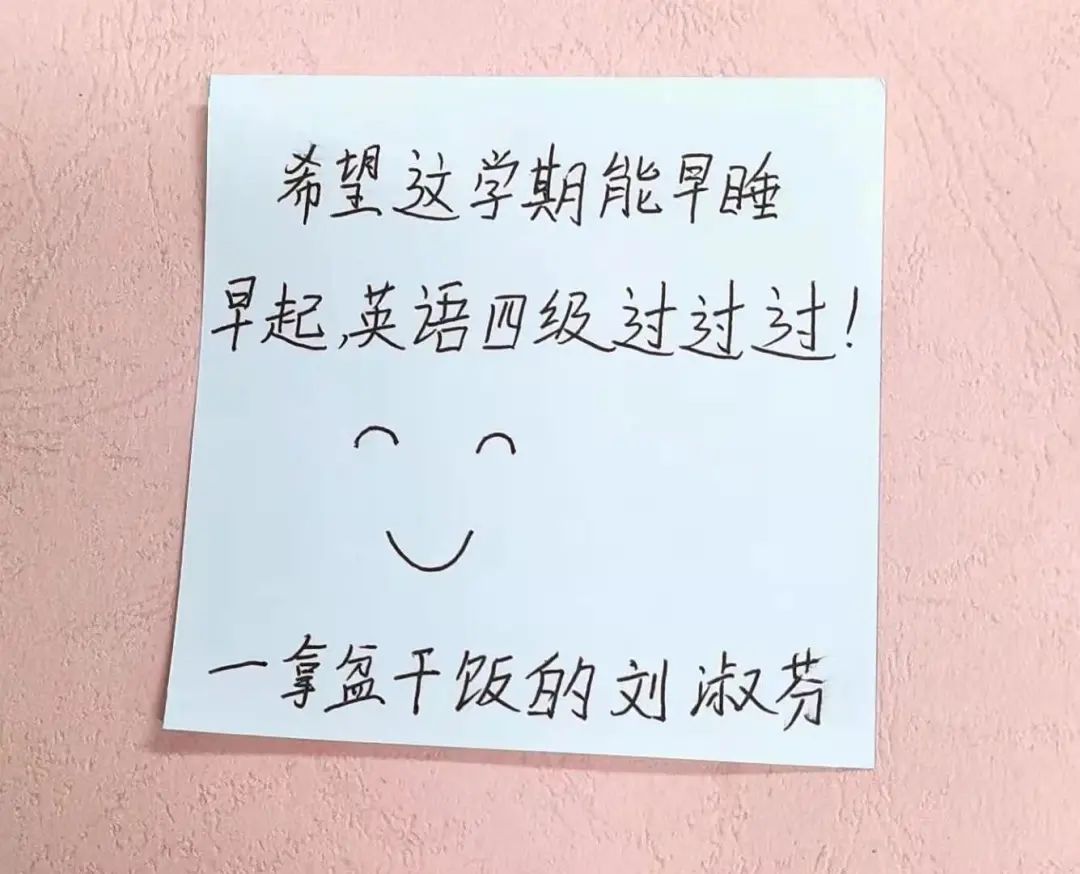 希望这学期能早睡
早起,英语四级过过过!
一拿盆干饭的刘淑芬